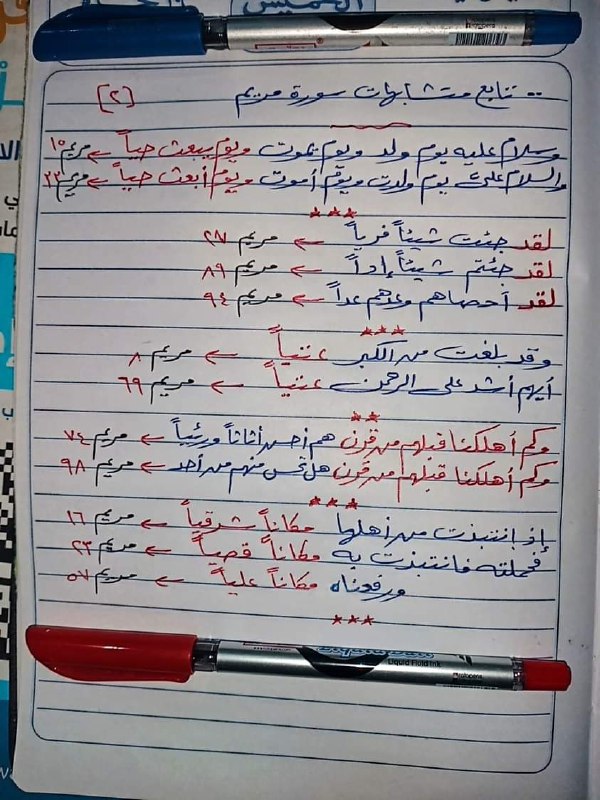 الخميس
.. تتابع متشابهات سورة مريم [٢]
وسلام عليه يوم ولد ويوم يموت ويوم يبعث حياً ← مريم ١٥
والسلام عليّ يوم ولدت ويوم أموت ويوم أبعث حياً ← مريم ٣٣
***
لقد جئت شيئاً فرياً ← مريم ٢٧
لقد جئتم شيئاً إداً ← مريم ٨٩
لقد أحصاهم وعدهم عداً ← مريم ٩٤
***
وقد بلغت من الكبر عتياً ← مريم ٨
أيهم أشد على الرحمن عتياً ← مريم ٦٩
**
وكم أهلكنا قبلهم من قرن هم أحسن أثاثاً ورئياً ← مريم ٧٤
وكم أهلكنا قبلهم من قرن هل تحس منهم من أحد ← مريم ٩٨
***
إذ انتبذت من أهلها مكاناً شرقياً ← مريم ١٦
فحملته فانتبذت به مكاناً قصياً ← مريم ٢٣
ورفعناه مكاناً علياً ← مريم ٥٧
***
Liquid Fluid Ink